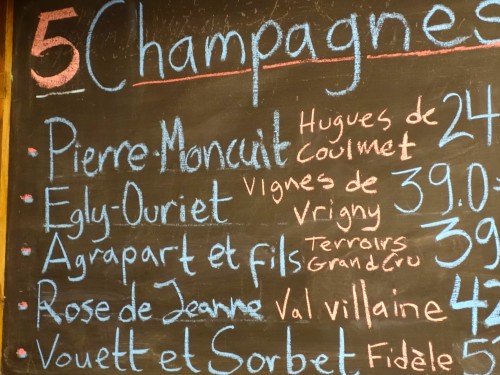 5 Champagnes
Pierre Moncuit Hugues de Coulmet 24
Egly-Ouriet Vignes de Vrigny 39.0
Agrapart et fils Terroirs Grand Cru 39
Rose de Jeanne Val villaine 42
Vouett et Sorbet Fidèle 5